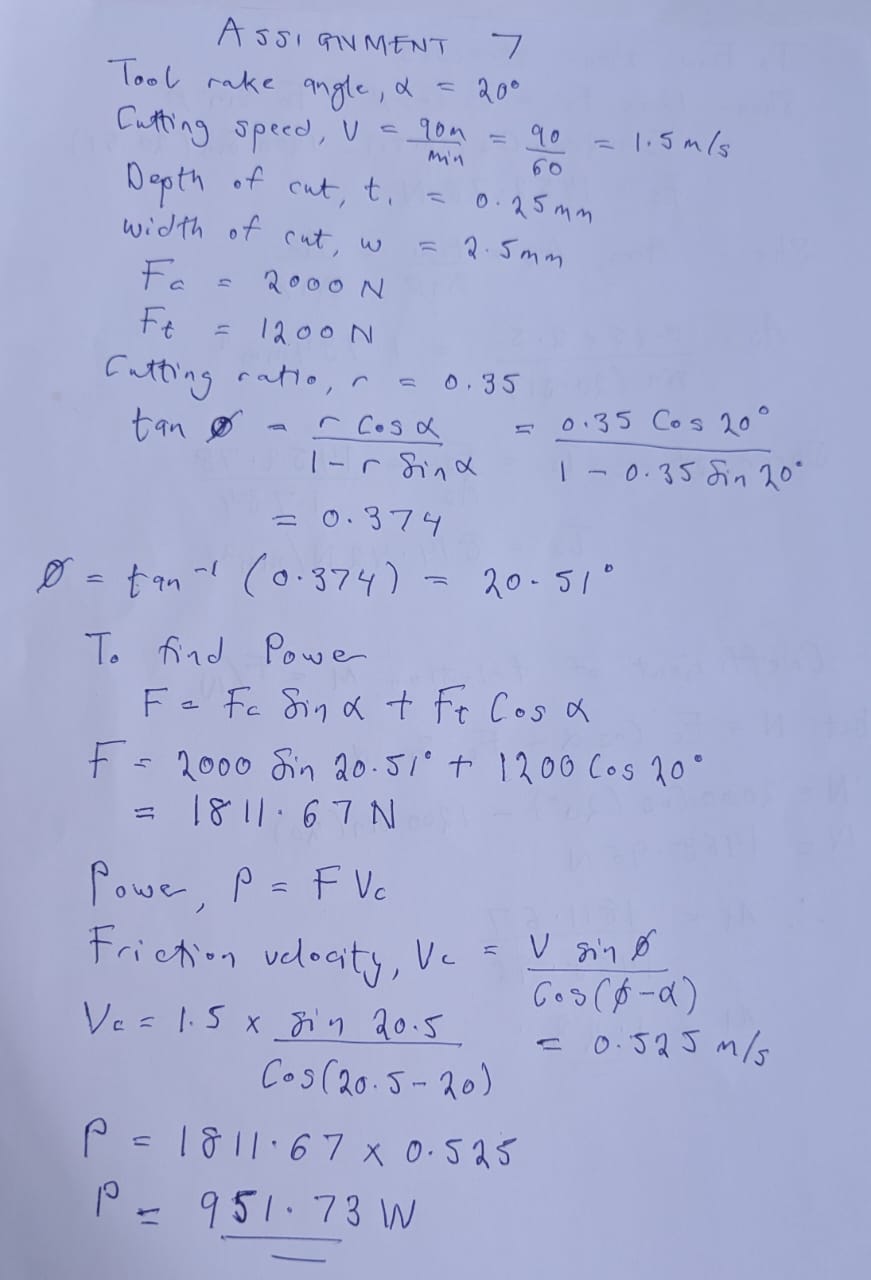 ASSIGNMENT 7
Tool rake angle, α = 20°
Cutting speed, V = 90m/min = 90/60 = 1.5 m/s
Depth of cut, t₁ = 0.25mm
width of cut, w = 2.5mm
Fc = 2000 N
Ft = 1200 N
Cutting ratio, r = 0.35
tan ø = r Cos α / 1 - r Sin α = 0.35 Cos 20° / 1 - 0.35 Sin 20°
= 0.374
ø = tan⁻¹ (0.374) = 20.51°
To find Power
F = Fc Sin α + Ft Cos α
F = 2000 Sin 20.51° + 1200 Cos 20°
= 1811.67 N
Power, P = F Vc
Friction velocity, Vc = V sin ø / Cos(ø-α)
Vc = 1.5 x sin 20.5 / Cos(20.5-20) = 0.525 m/s
P = 1811.67 x 0.525
P = 951.73 W